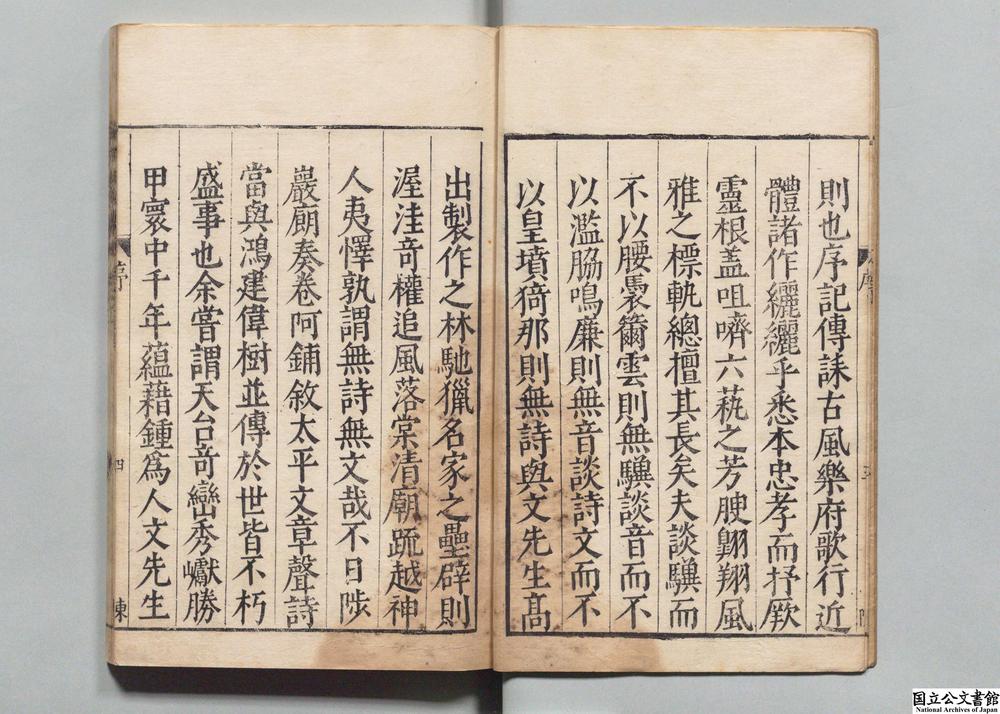 則也序記傳誄古風樂府歌行近
體諸作纚纚乎悉本忠孝而抒厥
靈根盖咀嚌六藝之芳腴翺翔風
雅之標軌總擅其長矣夫談驥而
不以腰褭籋雲則無驥談音而不
以濫脇鳴廉則無音談詩文而不
以皇墳猗那則無詩與文先生髙
出製作之林馳獵名家之壘辟則
渥洼竒權追風落棠清廟䟽越神
人夷懌孰謂無詩無文哉不日陟
巖廊奏卷阿鋪敘太平文章聲詩
當與鴻建偉樹並傳於世皆不朽
盛事也余嘗謂天台竒巒秀巘勝
甲寰中千年蘊藉鍾爲人文先生
序
四
東
国立公文書館
National Archives of Japan